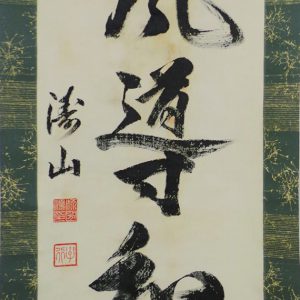 風導和
濤山